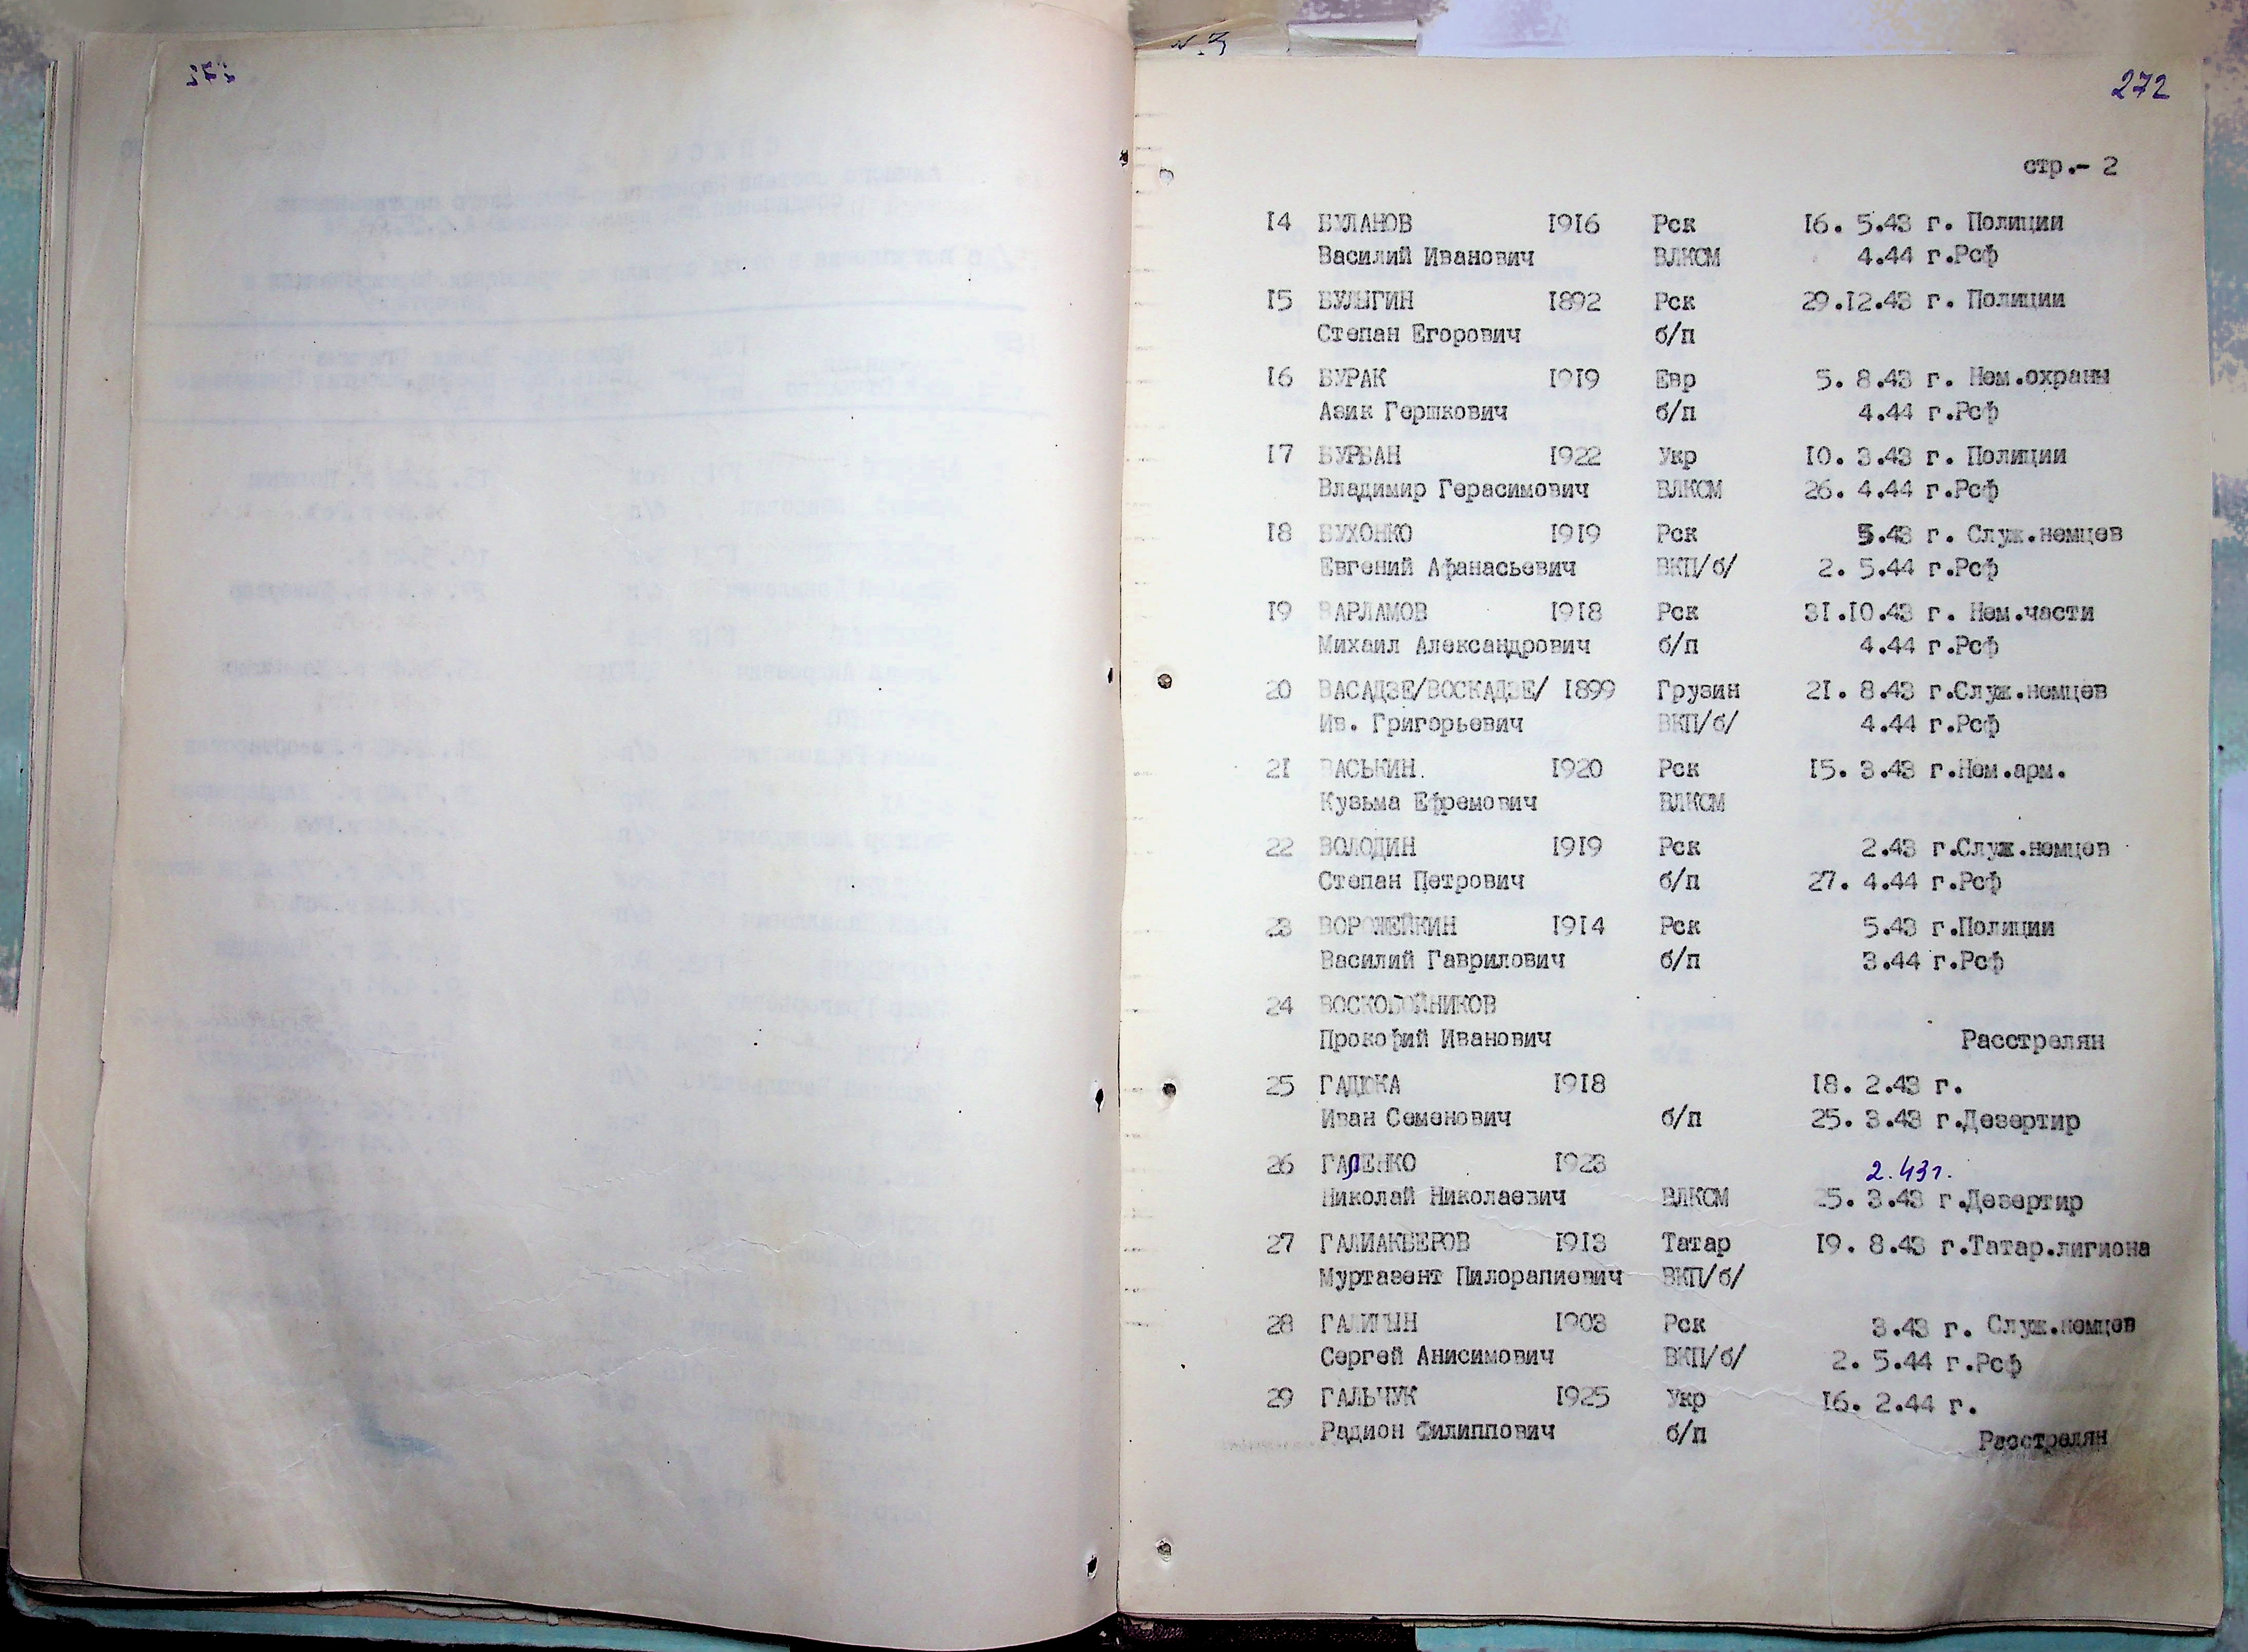 272
стр.- 2
14 БУЛАНОВ 1916 Рск 16. 5.43 г. Полиции
Василий Иванович ВЛКСМ 4.44 г.Рсф
15 БУЛЫГИН 1892 Рск 29.12.43 г. Полиции
Степан Егорович б/п
16 БУРАК 1919 Евр 5. 8.43 г. Нем.охраны
Азик Гершкович б/п 4.44 г.Рсф
17 БУРБАН 1922 Укр 10. 3.43 г. Полиции
Владимир Герасимович ВЛКСМ 26. 4.44 г.Рсф
18 БУХОНКО 1919 Рск 5.43 г. Служ.немцев
Евгений Афанасьевич ВКП/б/ 2. 5.44 г.Рсф
19 ВАРЛАМОВ 1918 Рск 31.10.43 г. Нем.части
Михаил Александрович б/п 4.44 г.Рсф
20 ВАСАДЗЕ/ВОСКАДЗЕ/ 1899 Грузин 21. 8.43 г.Служ.немцев
Ив. Григорьевич ВКП/б/ 4.44 г.Рсф
21 ВАСЬКИН. 1920 Рск 15. 3.43 г.Нем.арм.
Кузьма Ефремович ВЛКСМ
22 ВОЛОДИН 1919 Рск 2.43 г.Служ.немцев
Степан Петрович б/п 27. 4.44 г.Рсф
23 ВОРОЖЕЙКИН 1914 Рск 5.43 г.Полиции
Василий Гаврилович б/п 3.44 г.Рсф
24 ВОСКОБОЙНИКОВ
Прокофий Иванович Расстрелян
25 ГАДЮКА 1918 18. 2.43 г.
Иван Семенович б/п 25. 3.43 г.Дезертир
26 ГАЛЕНКО 1923 2.43г.
Николай Николаевич ВЛКСМ 25. 3.43 г.Дезертир
27 ГАЛИАКБЕРОВ 1913 Татар 19. 8.43 г.Татар.лигиона
Муртазент Пилорапиевич ВКП/б/
28 ГАЛИЦЫН 1903 Рск 3.43 г. Служ.немцев
Сергей Анисимович ВКП/б/ 2. 5.44 г.Рсф
29 ГАЛЬЧУК 1925 Укр 16. 2.44 г.
Радион Филиппович б/п Расстрелян